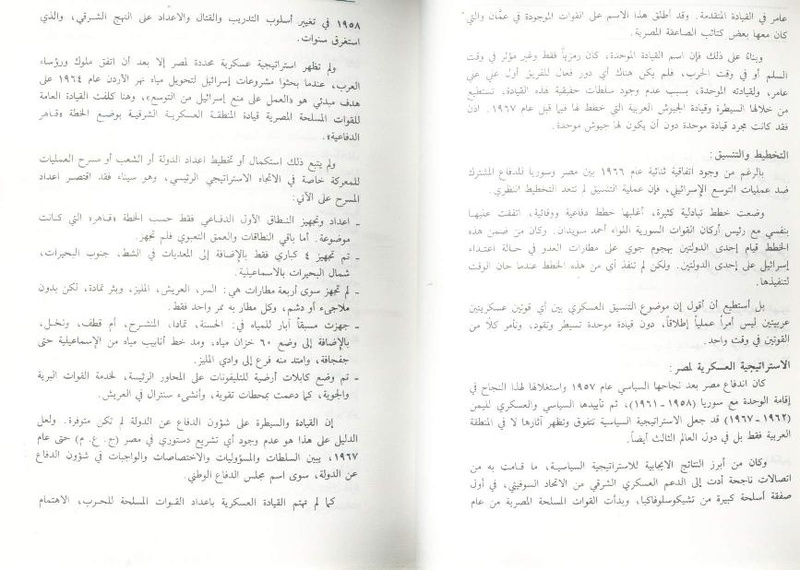 عامر في القيادة المتقدمة. وقد أطلق هذا الاسم على القوات الموجودة في عمّان والتي
كان معها بعض كتائب الصاعقة المصرية.
وبناءً على ذلك فإن اسم القيادة الموحدة، كان رمزياً فقط وغير مؤثر في وقت
السلم أو في وقت الحرب، فلم يكن هناك أي دور فعال للفريق أول علي علي
عامر، ولقيادته الموحدة، بسبب عدم وجود سلطات حقيقية لهذه القيادة، تستطيع
من خلالها السيطرة وقيادة الجيوش العربية التي خطط لها فيما قبل عام ١٩٦٧. اذن
فقد كانت مجرد قيادة موحدة دون أن يكون لها جيوش موحدة.
التخطيط والتنسيق:
بالرغم من وجود اتفاقية ثنائية عام ١٩٦٦ بين مصر وسوريا للدفاع المشترك
ضد عمليات التوسع الإسرائيلي، فإن عملية التنسيق لم تتعد التخطيط النظري.
وضعت خطط تبادلية كثيرة، أغلبها خطط دفاعية ووقائية، اتفقت عليها
بنفسي مع رئيس أركان القوات السورية اللواء أحمد سويدان. وكان من ضمن هذه
الخطط قيام إحدى الدولتين بهجوم جوي على مطارات العدو في حالة اعتداء
إسرائيل على إحدى الدولتين. ولكن لم تنفذ أي من هذه الخطط عندما حان الوقت
لتنفيذها.
بل أستطيع أن أقول إن موضوع التنسيق العسكري بين أي قوتين عسكريتين
عربيتين ليس أمراً عملياً إطلاقاً، دون قيادة موحدة تسيطر وتقود، وتأمر كلاً من
القوتين في وقت واحد.
الاستراتيجية العسكرية لمصر:
كان اندفاع مصر بعد نجاحها السياسي عام ١٩٥٧ واستغلالها لهذا النجاح في
إقامة الوحدة مع سوريا (١٩٥٨ - ١٩٦١)، ثم تأييدها السياسي والعسكري لليمن
(١٩٦٢ - ١٩٦٧) قد جعل الاستراتيجية السياسية تتفوق وتظهر آثارها لا في المنطقة
العربية فقط بل في دول العالم الثالث أيضاً.
وكان من أبرز النتائج الايجابية للاستراتيجية السياسية، ما قامت به من
اتصالات ناجحة أدت إلى الدعم العسكري الشرقي من الاتحاد السوفيتي، في أول
صفقة أسلحة كبيرة من تشيكوسلوفاكيا، وبدأت القوات المسلحة المصرية من عام
١٩٥٨ في تغيير أسلوب التدريب والقتال والاعداد على النهج الشرقي، والذي
استغرق سنوات.
ولم تظهر استراتيجية عسكرية محددة لمصر إلا بعد أن اتفق ملوك ورؤساء
العرب، عندما بحثوا مشروعات إسرائيل لتحويل مياه نهر الأردن عام ١٩٦٤ على
هدف مبدئي هو «العمل على منع إسرائيل من التوسع»، وهنا كلفت القيادة العامة
للقوات المسلحة المصرية قيادة المنطقة العسكرية الشرقية بوضع الخطة «قاهر
الدفاعية».
ولم يتبع ذلك استكمال أو تخطيط اعداد الدولة أو الشعب أو مسرح العمليات
للمعركة خاصة في الاتجاه الاستراتيجي الرئيسي، وهو سيناء فقد اقتصر اعداد
المسرح على الآتي:
- اعداد وتجهيز النطاق الأول الدفاعي فقط حسب الخطة «قاهر» التي كانت
موضوعة. أما باقي النطاقات والعمق التعبوي فلم تجهز.
- تم تجهيز ٤ كباري فقط بالإضافة إلى المعديات في الشط، جنوب البحيرات،
شمال البحيرات بالاسماعيلية.
- لم تجهز سوى أربعة مطارات هي: السر، العريش، المليز، وبئر تمادة، لكن بدون
ملاجىء أو دشم، وكل مطار به ممر واحد فقط.
- جهزت مسبقاً آبار للمياه في: الحسنة، تمادا، المنشرح، أم قطف، ونخل،
بالإضافة إلى وضع ٦٠ خزان مياه، ومد خط أنابيب مياه من الإسماعيلية حتى
جفجافة، وامتد منه فرع إلى وادي المليز.
- تم وضع كابلات أرضية للتليفونات على المحاور الرئيسة، لخدمة القوات البرية
والجوية، كما دعمت بمحطات تقوية، وأنشىء سنترال في العريش.
إن القيادة والسيطرة على شؤون الدفاع عن الدولة لم تكن متوفرة. ولعل
الدليل على هذا هو عدم وجود أي تشريع دستوري في مصر (ج. ع. م) حتى عام
١٩٦٧، يبين السلطات والمسؤوليات والاختصاصات والواجبات في شؤون الدفاع
عن الدولة، سوى اسم مجلس الدفاع الوطني.
كما لم تهتم القيادة العسكرية باعداد القوات المسلحة للحرب، الاهتمام